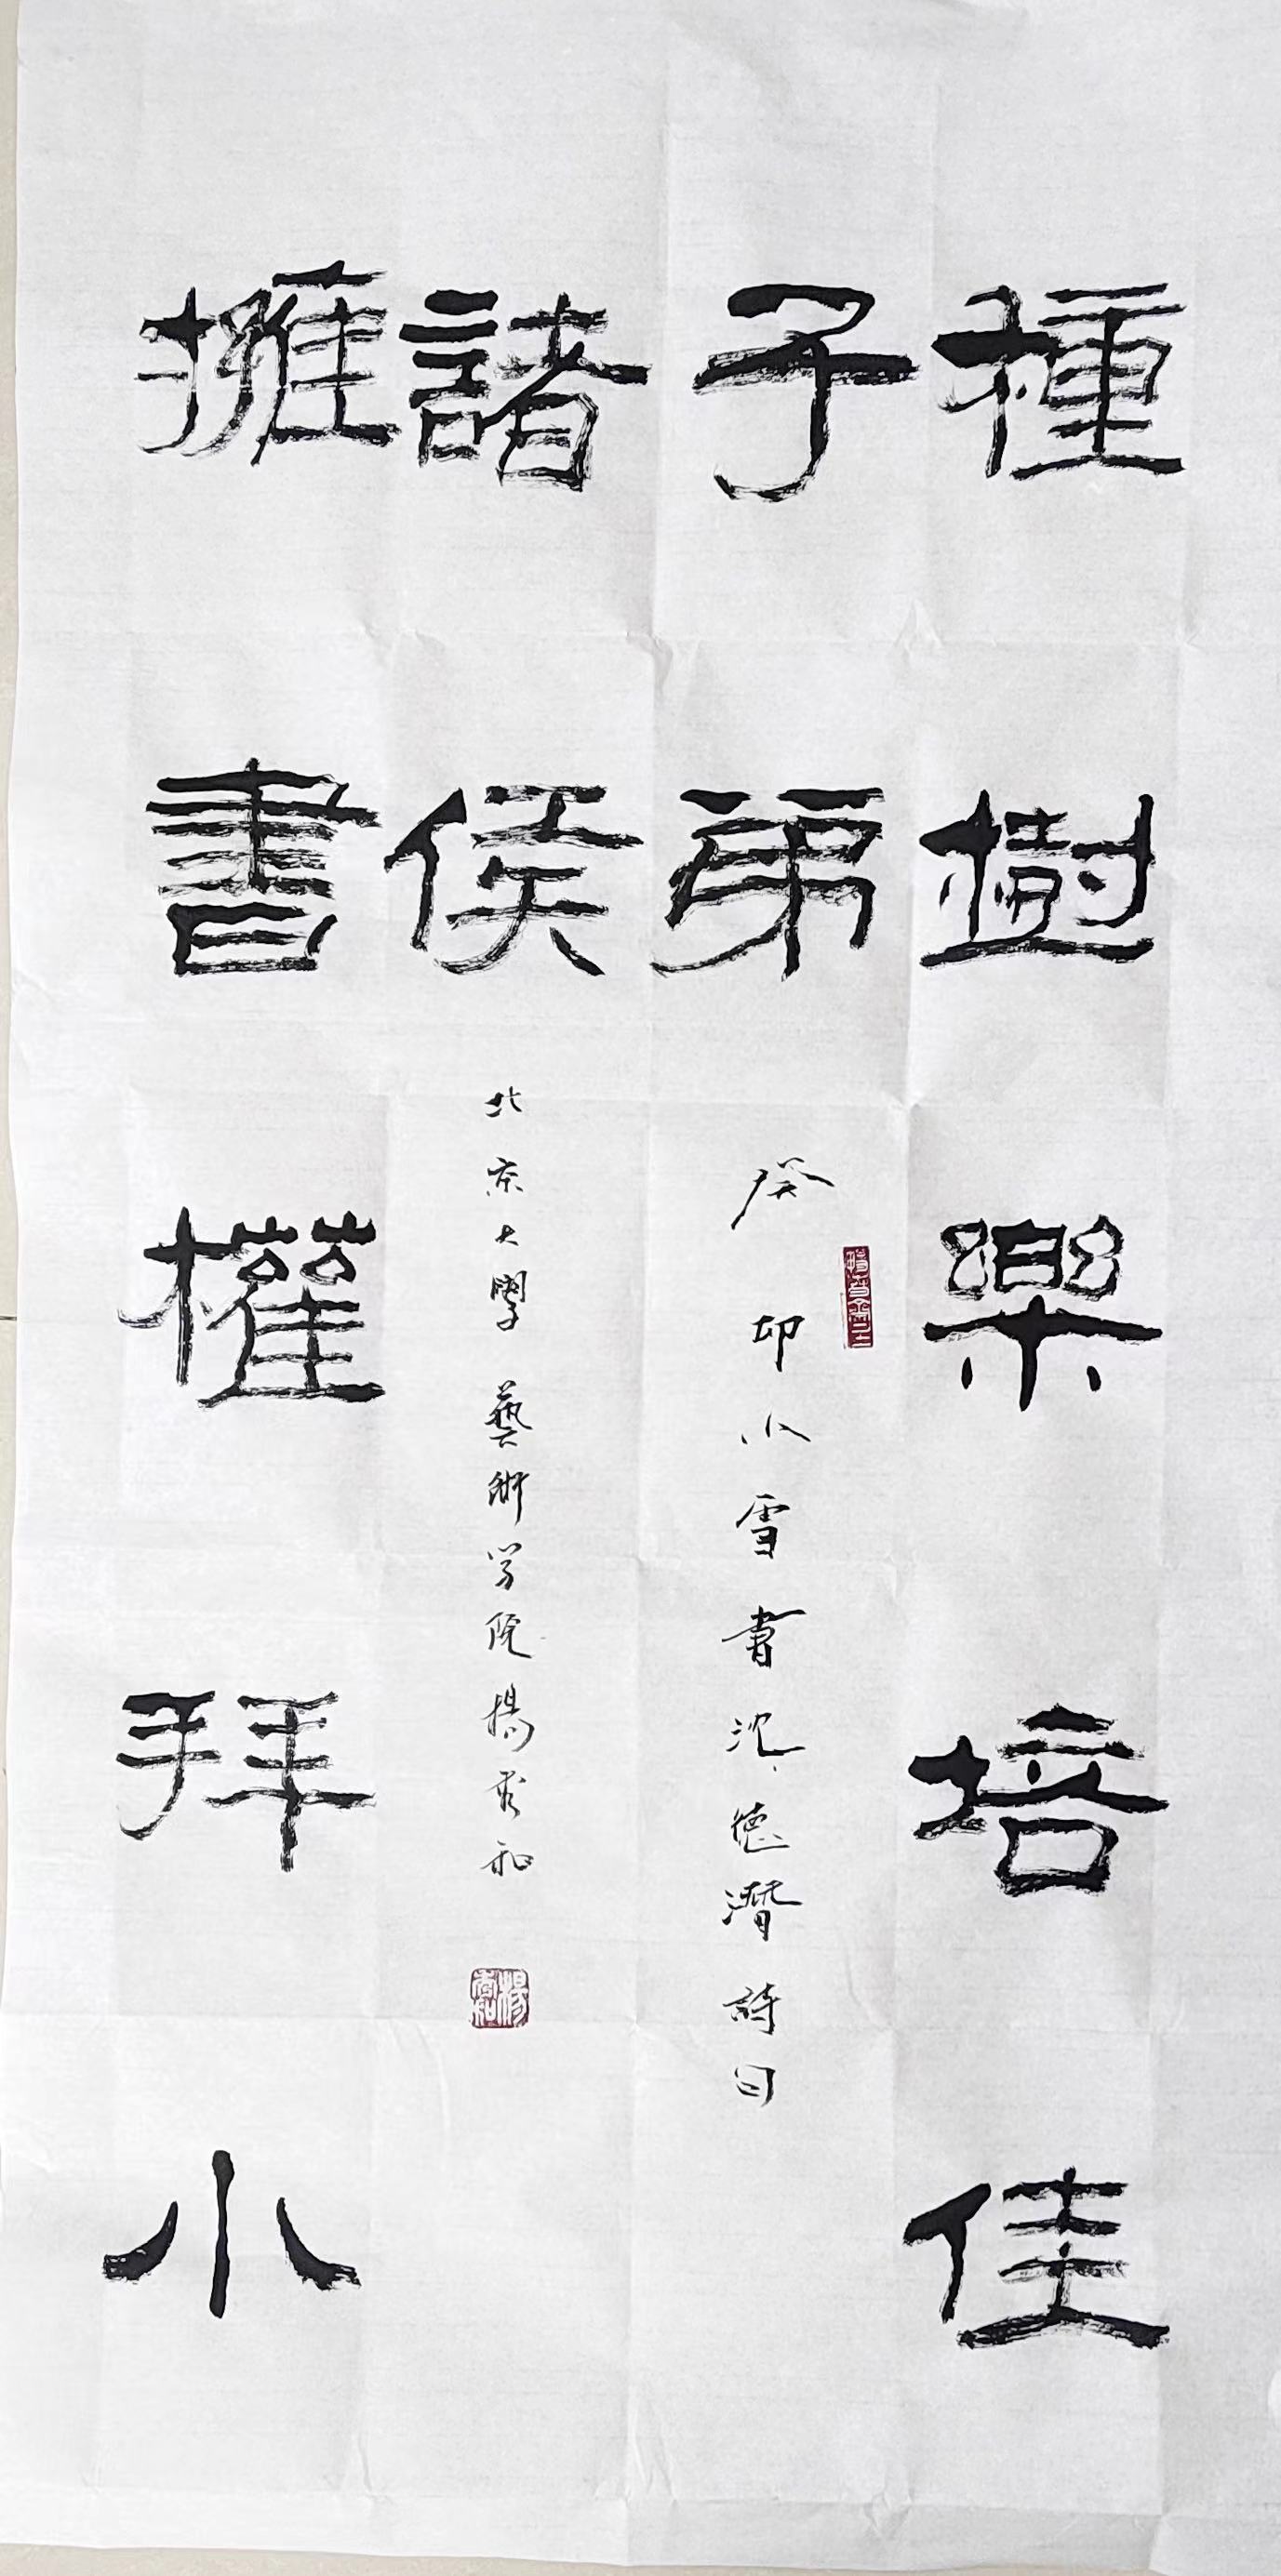 種樹樂培佳
子弟
癸卯小雪書沈德潛詩句
擁書權拜小
諸侯
北京大學藝術学院楊秀